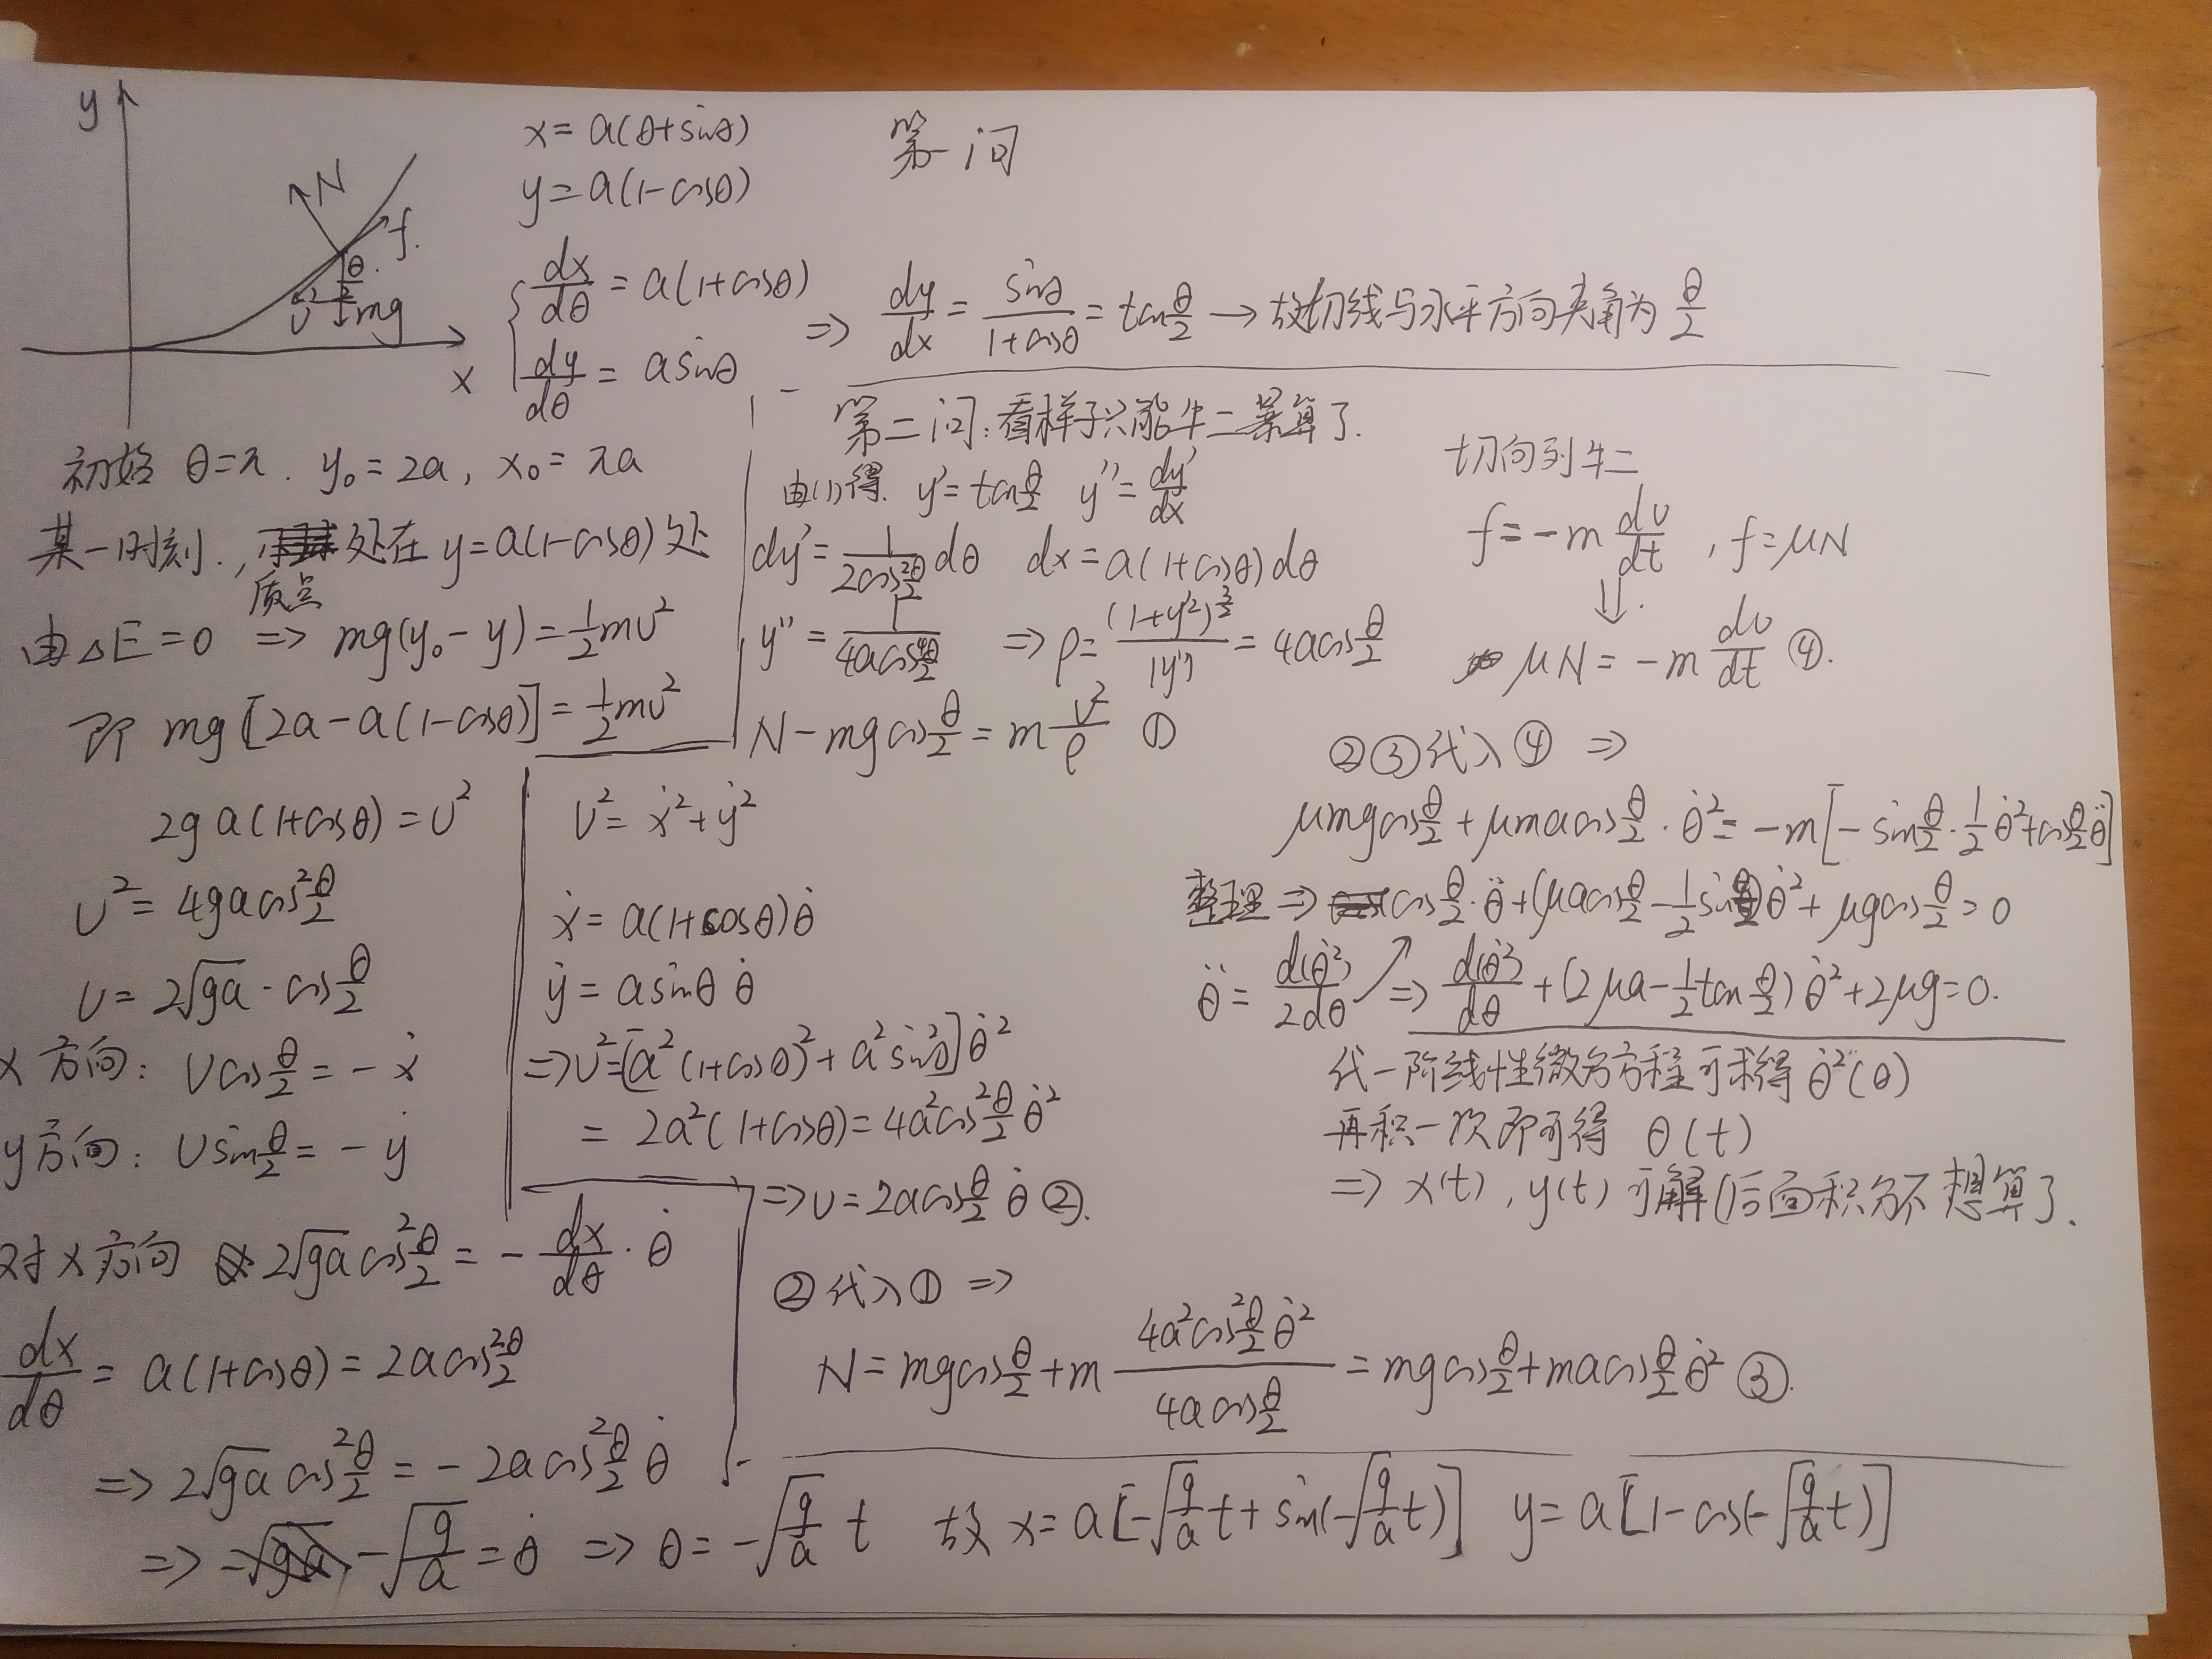 y
N
f.
θ/2
v
mg
x
x = a(θ+sinθ)
y = a(1-cosθ)
第一问
{ dx/dθ = a(1+cosθ)
dy/dθ = asinθ
⇒ dy/dx = sinθ/(1+cosθ) = tan θ/2 → 故切线与水平方向夹角为 θ/2
初始 θ=π. y₀=2a, x₀=πa
某一时刻., 质点处在 y=a(1-cosθ)处
由ΔE=0 ⇒ mg(y₀-y) = ½mv²
即 mg[2a-a(1-cosθ)] = ½mv²
2ga(1+cosθ) = v²
v² = 4ga cos² θ/2
v = 2√(ga)·cos θ/2
x方向: v cos θ/2 = -ẋ
y方向: v sin θ/2 = -ẏ
对x方向 2√(ga) cos² θ/2 = - dx/dθ · θ̇
dx/dθ = a(1+cosθ) = 2a cos² θ/2
⇒ 2√(ga) cos² θ/2 = -2a cos² θ/2 θ̇
⇒ -√(g/a) = θ̇ ⇒ θ = -√(g/a) t 故 x = a[-√(g/a)t + sin(-√(g/a)t)] y = a[1-cos(-√(g/a)t)]
第二问:看样子只能牛二暴算了.
由(1)得. y' = tan θ/2 y'' = dy'/dx
dy' = 1/(2cos² θ/2) dθ dx = a(1+cosθ)dθ
y'' = 1/(4a cos⁴ θ/2) ⇒ ρ = (1+y'²)^(3/2)/|y''| = 4a cos θ/2
N - mg cos θ/2 = m v²/ρ ①
v² = ẋ²+ẏ²
ẋ = a(1+cosθ)θ̇
ẏ = asinθ θ̇
⇒ v² = [a²(1+cosθ)² + a²sin²θ]θ̇²
= 2a²(1+cosθ) = 4a²cos² θ/2 θ̇²
⇒ v = 2a cos θ/2 θ̇ ②.
②代入① ⇒
N = mg cos θ/2 + m (4a²cos² θ/2 θ̇²)/(4a cos θ/2) = mg cos θ/2 + ma cos θ/2 θ̇² ③.
切向列牛二
f = -m dv/dt , f=μN
⇓.
μN = -m dv/dt ④.
②③代入④ ⇒
μmg cos θ/2 + μma cos θ/2 · θ̇² = -m[-sin θ/2 · ½ θ̇² + cos θ/2 θ̈]
整理 ⇒ cos θ/2 · θ̈ + (μa cos θ/2 - ½ sin θ/2)θ̇² + μg cos θ/2 = 0
θ̈ = d(θ̇²)/2dθ ↗ ⇒ d(θ̇²)/dθ + (2μa - ½ tan θ/2)θ̇² + 2μg = 0.
代一阶线性微分方程可求得 θ̇²(θ)
再积一次即可得 θ(t)
⇒ x(t), y(t) 可解(后面积分不想算了.